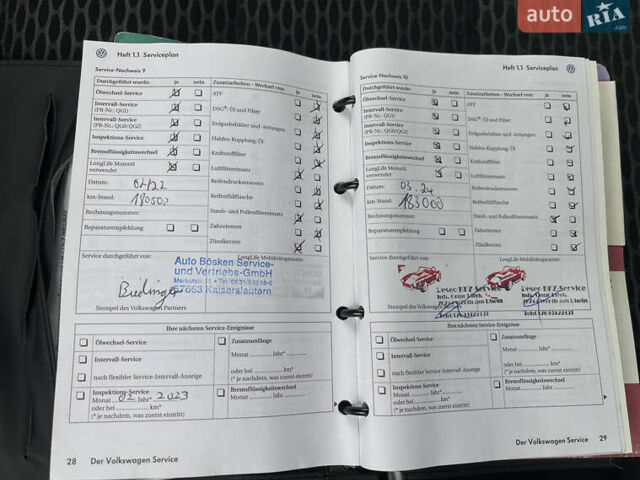 auto RIA
Heft 1.1 Serviceplan
Service-Nachweis 9
Durchgeführt wurde: ja nein
Ölwechsel-Service
Intervall-Service
(PR-Nr.: QG1)
Intervall-Service
(PR-Nr.: QG0/QG2)
Inspektions-Service
Bremsflüssigkeitswechsel
LongLife Motoröl
verwendet
Datum: 02/22
km-Stand: 180500
Rechnungsnummer:
Reparaturempfehlung
Zusatzarbeiten - Wechsel von: ja nein
ATF
DSG®: Öl und Filter
Erdgasbehälter und -leitungen
Haldex-Kupplung: Öl
Kraftstofffilter
Luftfiltereinsatz
Reifendrucksensoren
Reifenfüllflasche
Staub- und Pollenfiltereinsatz
Zahnriemen
Zündkerzen
Service durchgeführt von:
LongLife Mobilitätsgarantie:
Auto Bösken Service-
und Vertriebs-GmbH
67663 Kaiserslautern
Stempel des Volkswagen Partners
Ihre nächsten Service-Ereignisse
Ölwechsel-Service
Intervall-Service
nach flexibler Service-Intervall-Anzeige
Inspektions-Service
Monat 02 Jahr* 2023
oder bei km*
(* je nachdem, was zuerst eintritt)
Zusatzumfänge
Monat Jahr*
oder bei km*
(* je nachdem, was zuerst eintritt)
Bremsflüssigkeitswechsel
Monat Jahr
28 Der Volkswagen Service
Heft 1.1 Serviceplan
Service-Nachweis 10
Durchgeführt wurde: ja nein
Ölwechsel-Service
Intervall-Service
(PR-Nr.: QG1)
Intervall-Service
(PR-Nr.: QG0/QG2)
Inspektions-Service
Bremsflüssigkeitswechsel
LongLife Motoröl
verwendet
Datum: 03.24
km-Stand: 183000
Rechnungsnummer:
Reparaturempfehlung
Zusatzarbeiten - Wechsel von: ja nein
ATF
DSG®: Öl und Filter
Erdgasbehälter und -leitungen
Haldex-Kupplung: Öl
Kraftstofffilter
Luftfiltereinsatz
Reifendrucksensoren
Reifenfüllflasche
Staub- und Pollenfiltereinsatz
Zahnriemen
Zündkerzen
Service durchgeführt von:
LongLife Mobilitätsgarantie:
KFZ-Service
Stempel des Volkswagen
Ihre nächsten Service-Ereignisse
Ölwechsel-Service
Intervall-Service
nach flexibler Service-Intervall-Anzeige
Inspektions-Service
Monat Jahr*
oder bei km*
(* je nachdem, was zuerst eintritt)
Zusatzumfänge
Monat Jahr*
oder bei km*
(* je nachdem, was zuerst eintritt)
Bremsflüssigkeitswechsel
Monat Jahr
Der Volkswagen Service 29